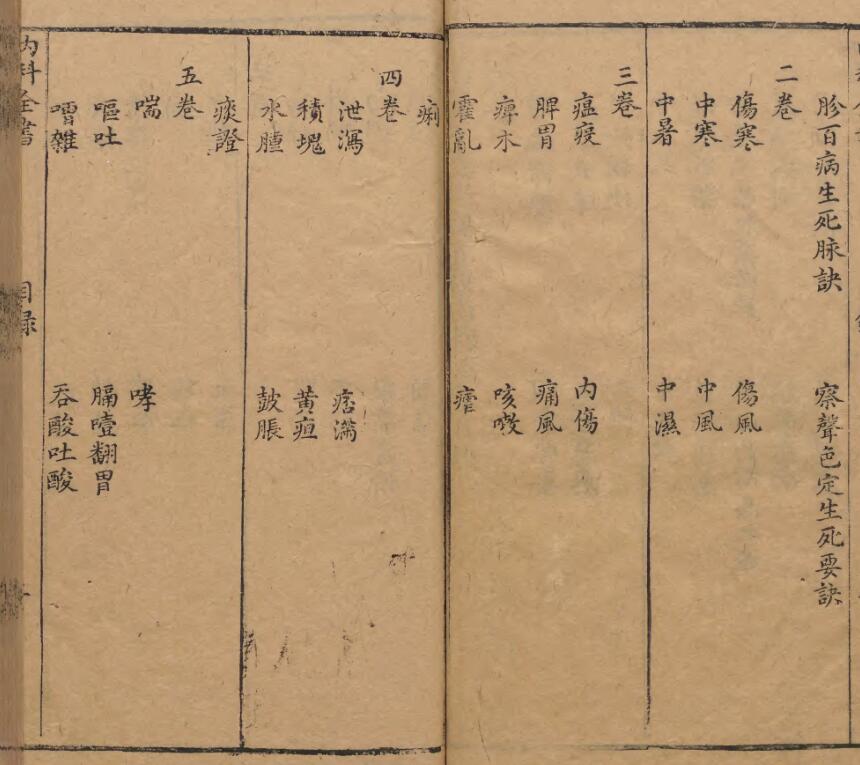 胗百病生死脉訣 察聲色定生死要訣
二卷
傷寒 傷風
中寒 中風
中暑 中濕
三卷
瘟疫 内傷
脾胃 痛風
痺木 咳嗽
霍亂 瘧
痢
四卷
泄瀉 痞滿
積塊 黃疸
水腫 鼓脹
痰證
五卷
喘 哮
嘔吐 膈噎翻胃
嘈雜 吞酸吐酸
内科全書 目録